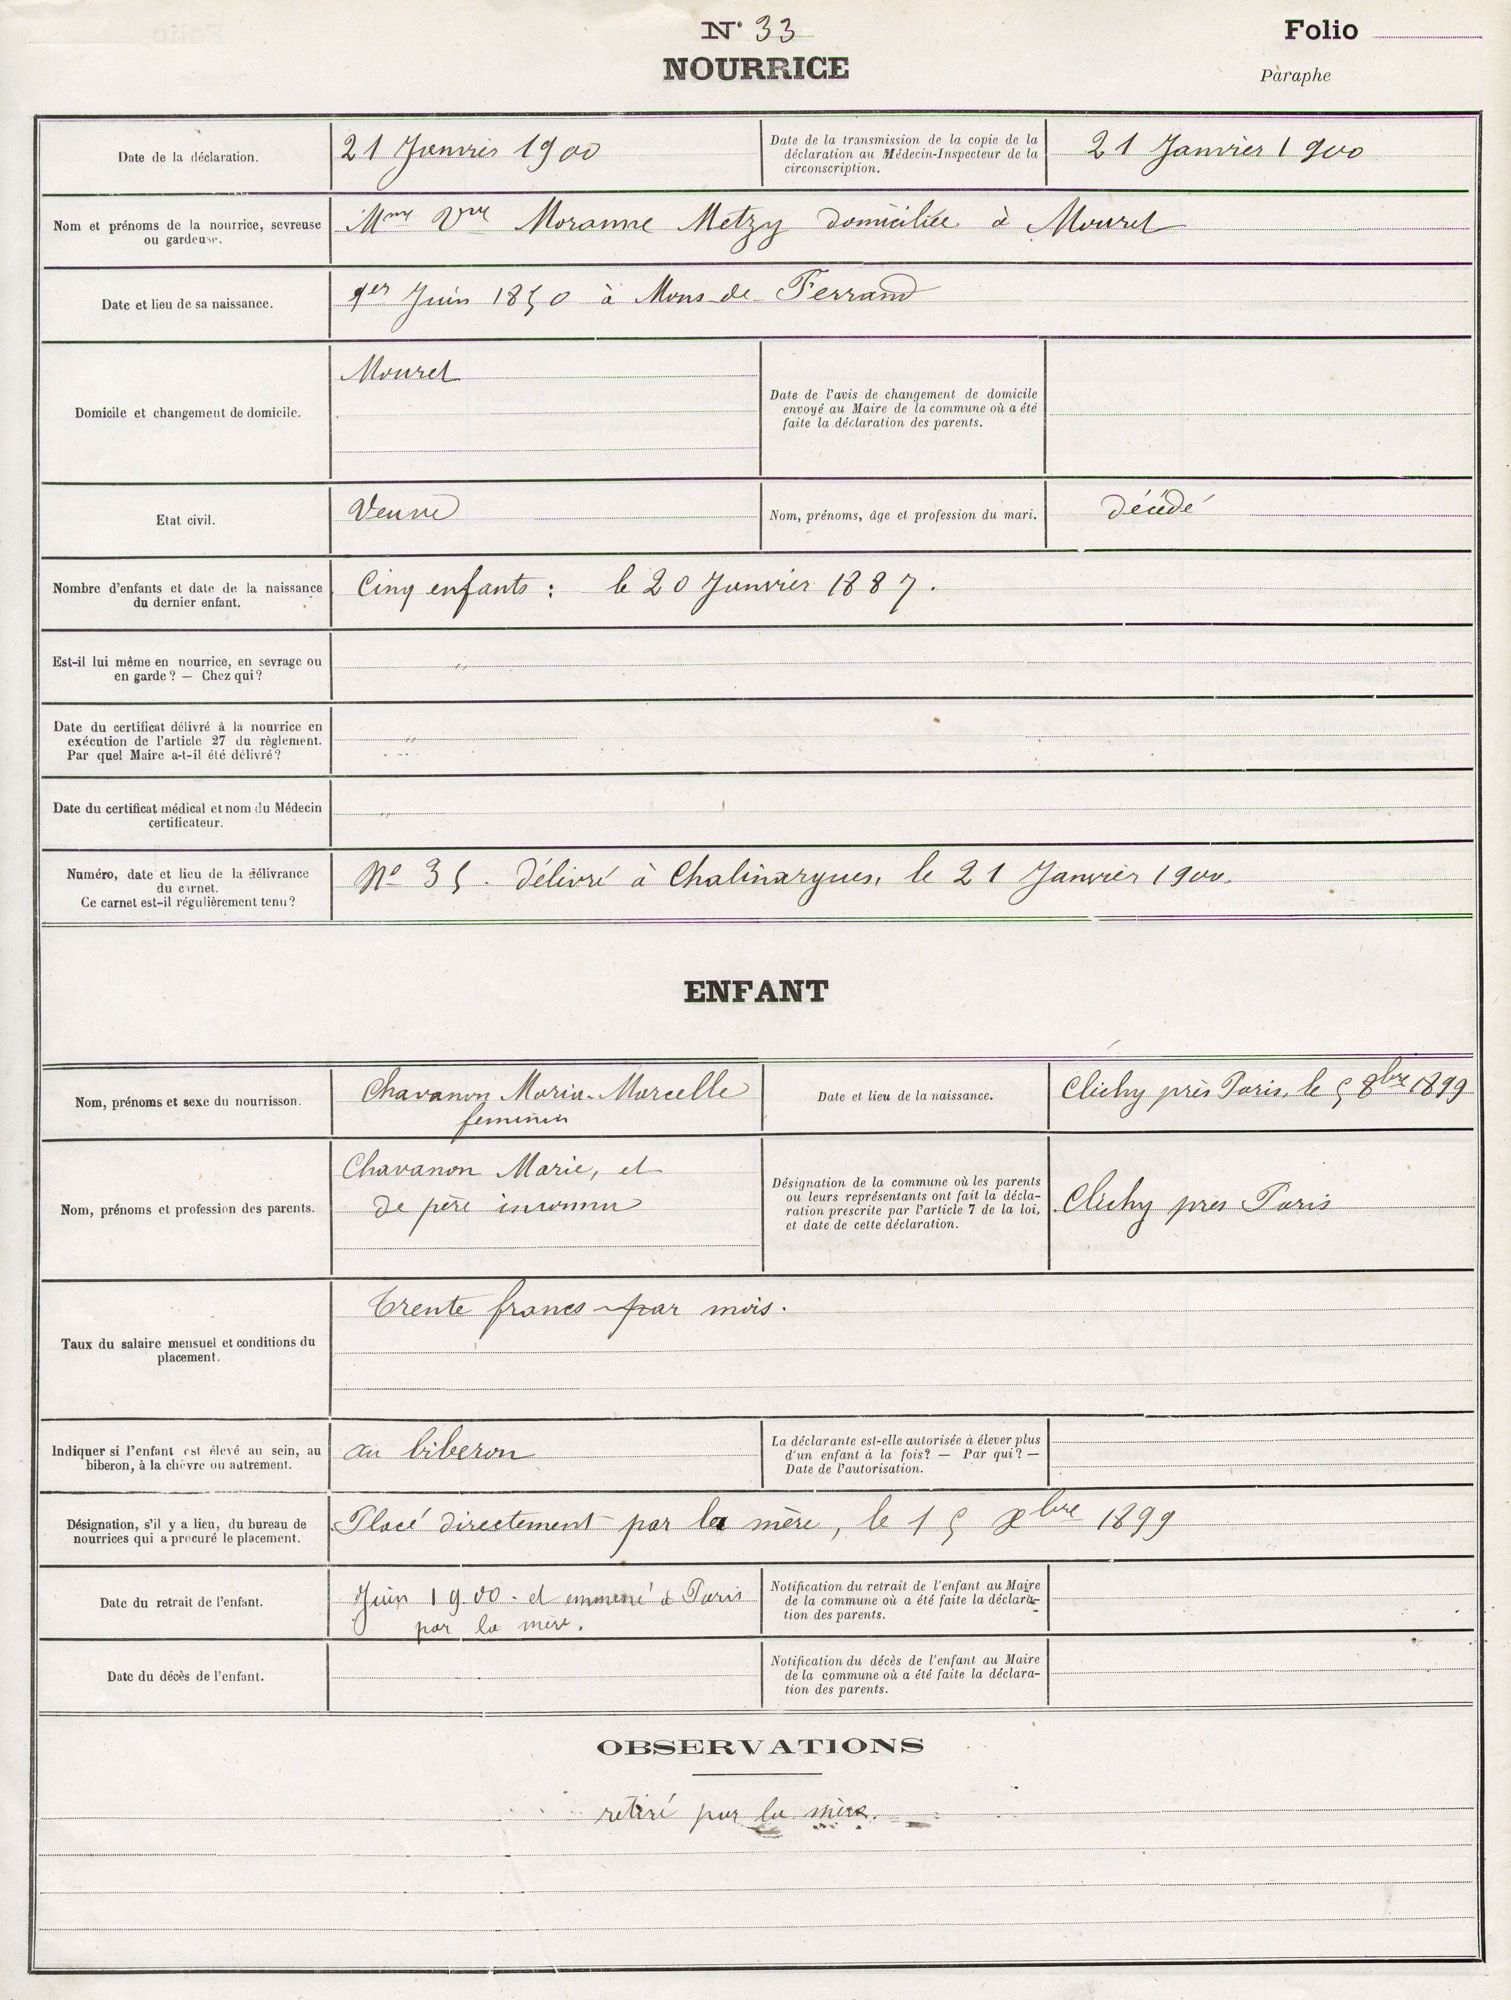 N° 33
Folio
NOURRICE
Paraphe
Date de la déclaration.
21 Janvier 1900
Date de la transmission de la copie de la
déclaration au Médecin-Inspecteur de la
circonscription.
21 Janvier 1900
Nom et prénoms de la nourrice, sevreuse
ou gardeuse.
Mme Vve Moranne Metzy domiciliée à Mouret
Date et lieu de sa naissance.
1er Juin 1850 à Mons de Ferrand
Domicile et changement de domicile.
Mouret
Date de l'avis de changement de domicile
envoyé au Maire de la commune où a été
faite la déclaration des parents.
Etat civil.
Veuve
Nom, prénoms, âge et profession du mari.
décédé
Nombre d'enfants et date de la naissance
du dernier enfant.
Cinq enfants : le 20 Janvier 1887.
Est-il lui même en nourrice, en sevrage ou
en garde ? — Chez qui ?
"
Date du certificat délivré à la nourrice en
exécution de l'article 27 du règlement.
Par quel Maire a-t-il été délivré ?
"
Date du certificat médical et nom du Médecin
certificateur.
"
Numéro, date et lieu de la délivrance
du carnet.
Ce carnet est-il régulièrement tenu ?
No 35. Délivré à Chalinargues, le 21 Janvier 1900.
ENFANT
Nom, prénoms et sexe du nourrisson.
Chavanon Maria-Marcelle
feminin
Date et lieu de la naissance.
Clichy près Paris, le 5 8bre 1899
Nom, prénoms et profession des parents.
Chavanon Marie, et
de père inconnu
Désignation de la commune où les parents
ou leurs représentants ont fait la décla-
ration prescrite par l'article 7 de la loi,
et date de cette déclaration.
Clichy pres Paris
Taux du salaire mensuel et conditions du
placement.
Trente francs par mois.
Indiquer si l'enfant est élevé au sein, au
biberon, à la chèvre ou autrement.
au biberon
La déclarante est-elle autorisée à élever plus
d'un enfant à la fois ? — Par qui ? —
Date de l'autorisation.
Désignation, s'il y a lieu, du bureau de
nourrices qui a procuré le placement.
Placé directement par la mère, le 15 Xbre 1899
Date du retrait de l'enfant.
Juin 1900. et emmené à Paris
par la mère.
Notification du retrait de l'enfant au Maire
de la commune où a été faite la déclara-
tion des parents.
Date du décès de l'enfant.
Notification du décès de l'enfant au Maire
de la commune où a été faite la déclara-
tion des parents.
OBSERVATIONS
retiré par la mère.